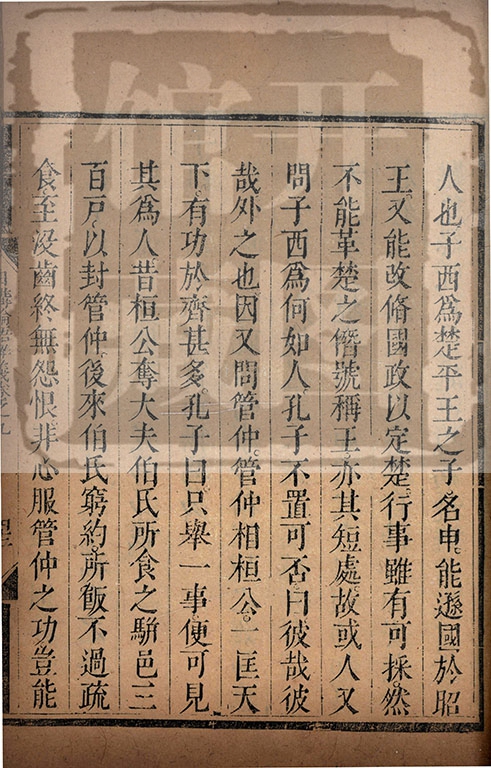 人也子西爲楚平王之子名申。能遜國於昭
王又能改脩國政以定楚。行事雖有可採。然
不能革楚之僭號稱王。亦其短處。故或人又
問子西爲何如人。孔子不置可否。曰彼哉彼
哉外之也。因又問管仲。管仲相桓公。一匡天
下。有功於齊甚多。孔子曰只舉一事便可見
其爲人。昔桓公奪大夫伯氏所食之駢邑三
百戸。以封管仲。後來伯氏窮約。所飯不過疏
食。至沒齒終無怨恨。非心服管仲之功豈能